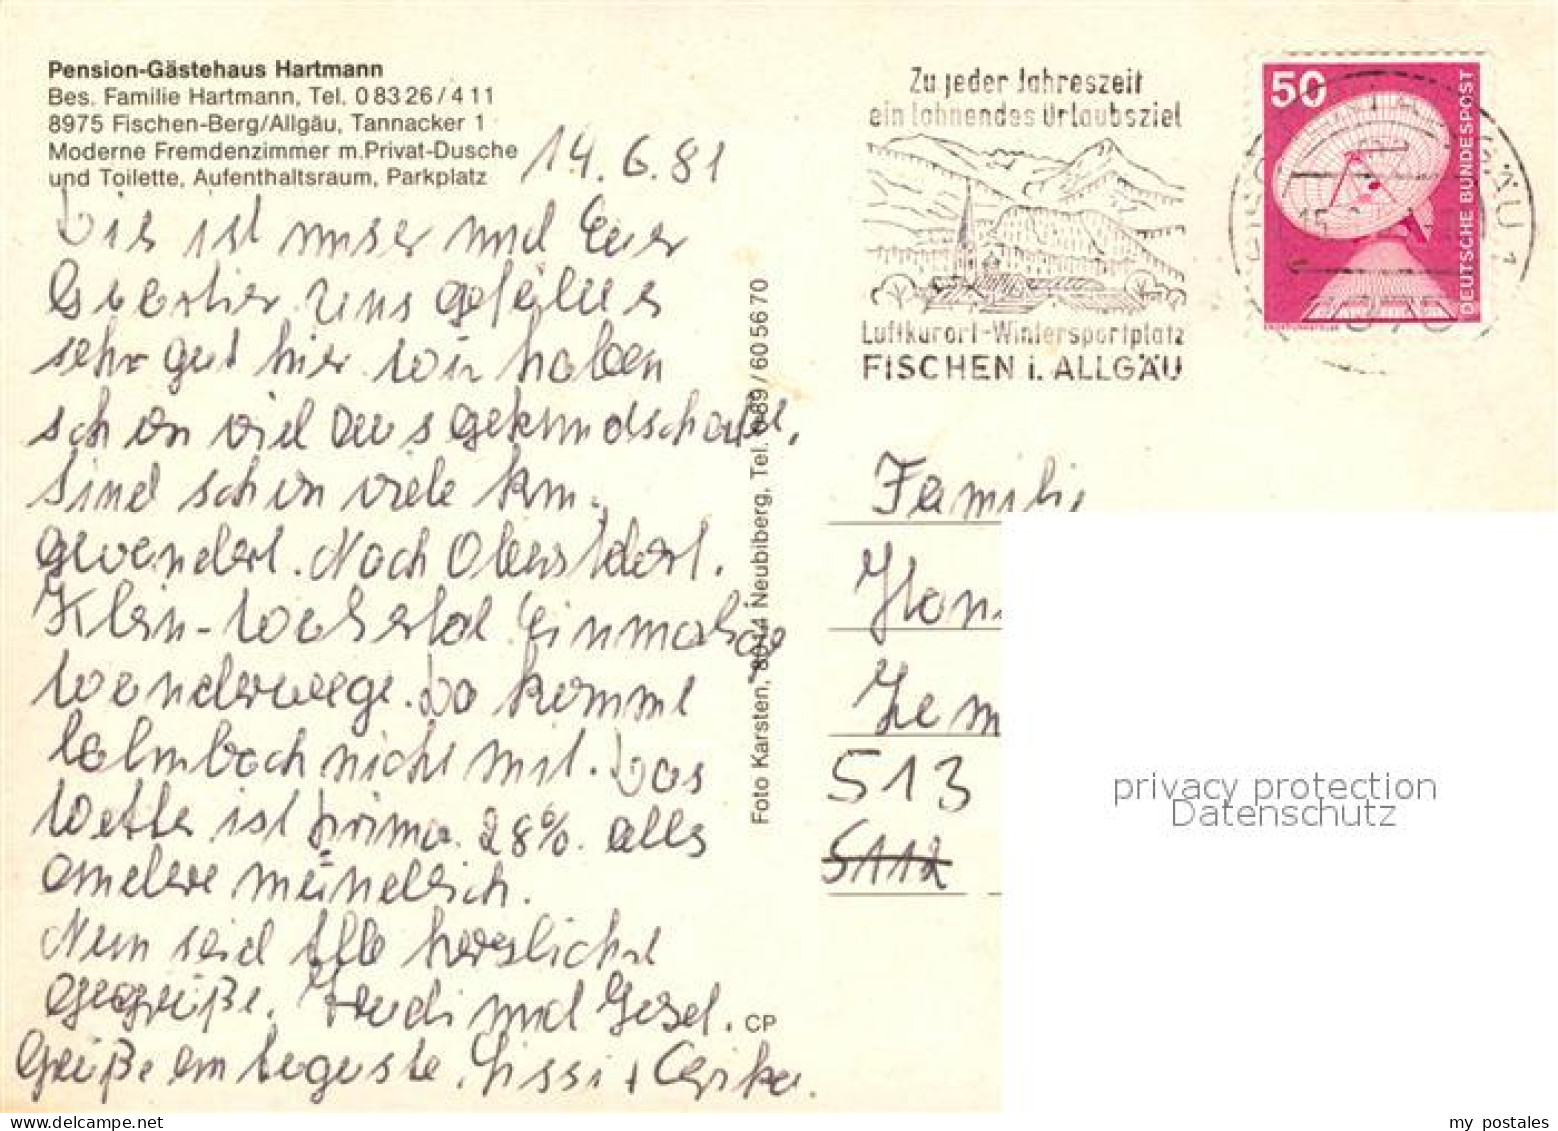 Pension-Gästehaus Hartmann
Bes. Familie Hartmann, Tel. 0 83 26 / 4 11
8975 Fischen-Berg/Allgäu, Tannacker 1
Moderne Fremdenzimmer m.Privat-Dusche
und Toilette, Aufenthaltsraum, Parkplatz
14.6.81
ist unser und Euer
Uns gefällt es
sehr gut hier. Wir haben
schon viel ausgekundschaftet,
sind schon viele km.
gewandert. Nach Oberstdorf.
Klein-Walsertal Einmalige
Wanderwege. Da kommt
nicht mit. Das
Wetter ist prima. 28% alles
andere mündlich.
Nun seid alle herzlichst
gegrüßt. und Gisel.
Grüße an Auguste. Sissi +
Foto Karsten, 8014 Neubiberg, Tel. 089 / 60 56 70
CP
Zu jeder Jahreszeit
ein lohnendes Urlaubsziel
Luftkurort-Wintersportplatz
FISCHEN i. ALLGÄU
50
DEUTSCHE BUNDESPOST
ERDEFUNKSTELLE
Familie
Hans
513
5112
privacy protection
Datenschutz
my postales